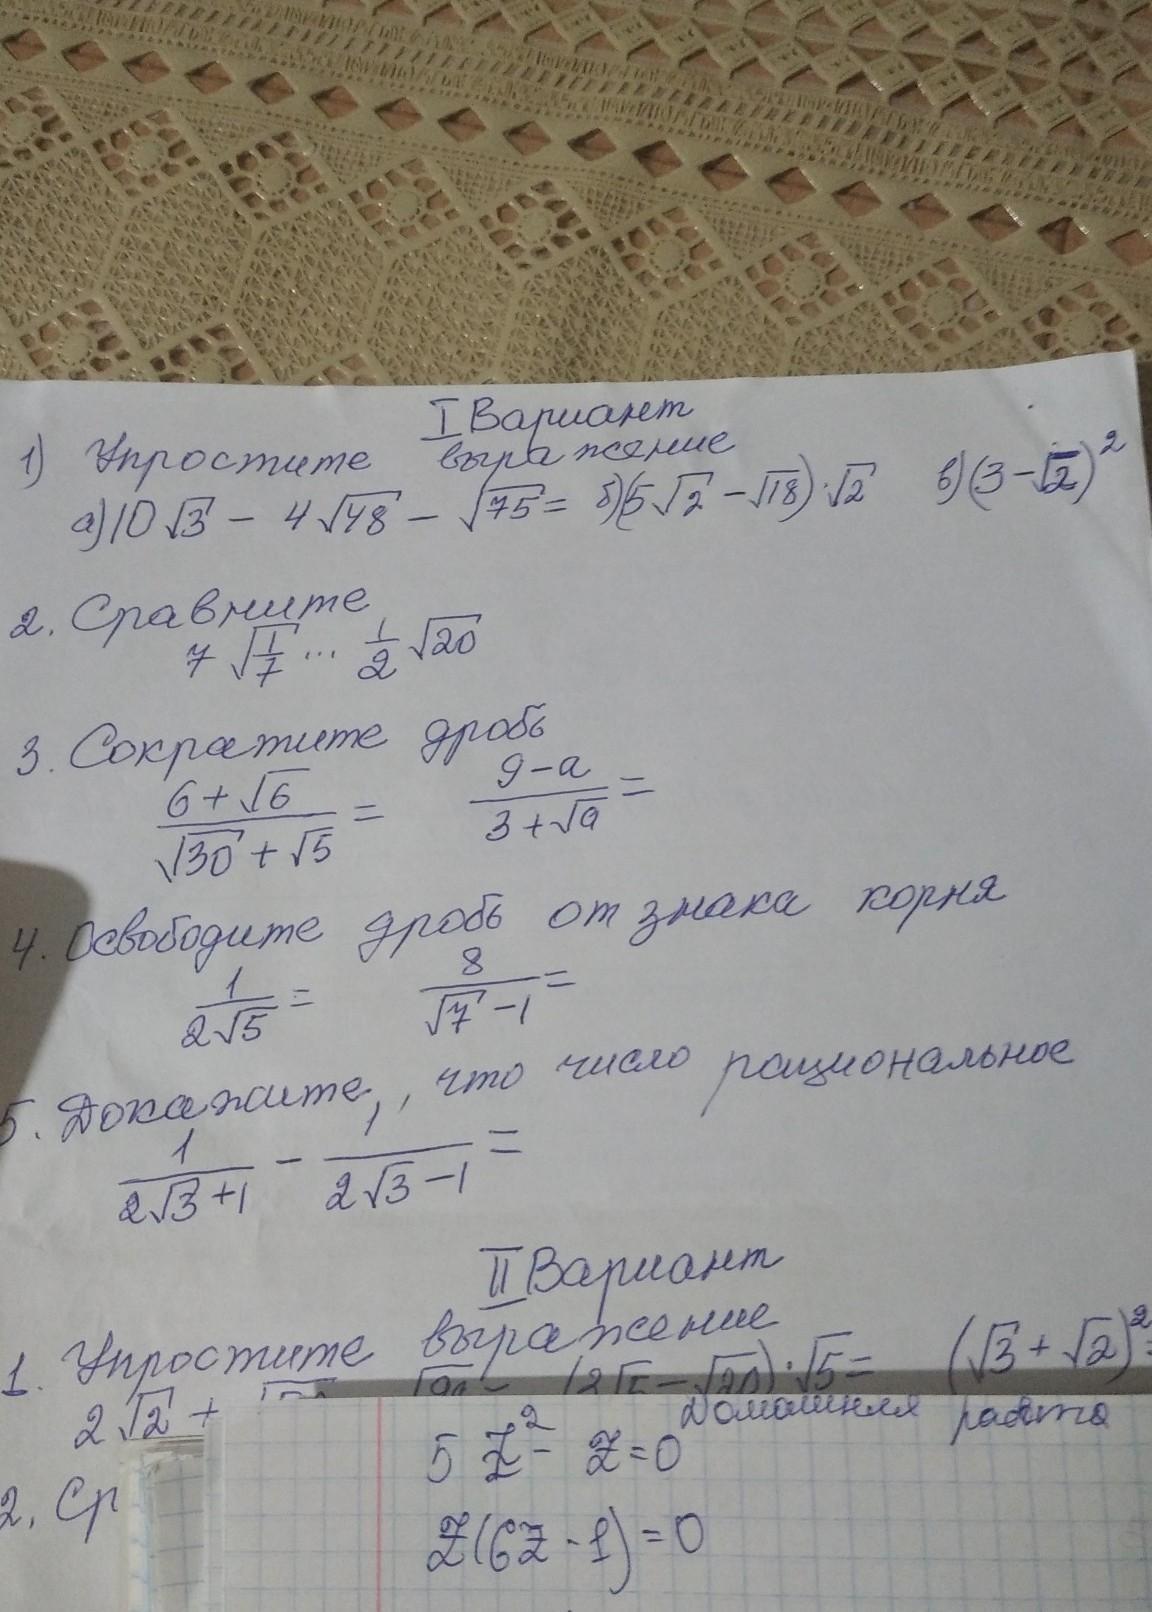 I Вариант
1) Упростите выражение
а) 10√3 - 4√48 - √75 = б) (5√2 - √18)·√2 в) (3 - √2)²
2. Сравните
7√(1/7) ... 1/2 √20
3. Сократите дробь
(6+√6)/(√30+√5) = (9-a)/(3+√a) =
4. Освободите дробь от знака корня
1/(2√5) = 8/(√7-1) =
5. Докажите, что число рациональное
1/(2√3+1) - 1/(2√3-1) =
II Вариант
1. Упростите выражение
2√2 + (2√5 - √20)·√5 = (√3 + √2)² =
2. Ср
Домашняя работа
5z² - z = 0
z(6z - 1) = 0